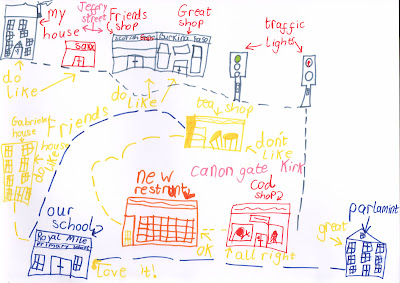 my
house
Jeffry
street
Friends
shop
Great
shop
traffic
lights
Burkina Faso
do
like
do
like
tea shop
don't
like
Gabriels
house
Friends
house
do
like
canon gate Kirk
new
restrunt
cod
shop?
our
school
Royal Mile
primary school
parlamint
great
ok
all right
Love it!